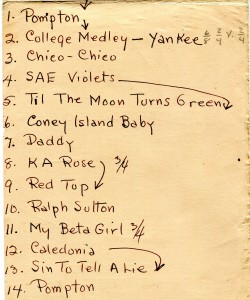 1. Pompton
2. College Medley - Yankee 6/8 2/4 V. 3/4
3. Chico-Chico
4. SAE Violets
5. Til The Moon Turns Green
6. Coney Island Baby
7. Daddy
8. KA Rose 3/4
9. Red Top
10. Ralph Sutton
11. My Beta Girl 3/4
12. Caledonia
13. Sin To Tell A Lie
14. Pompton